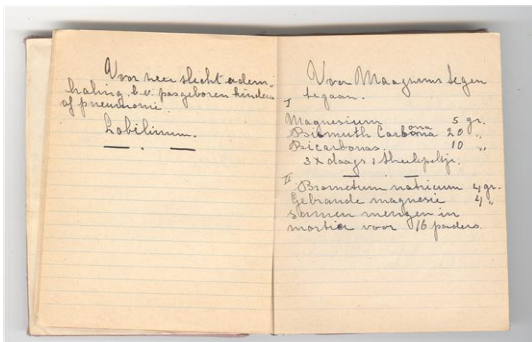 Voor zeer slecht adem-
haling b.v. pasgeboren kinders
of pneumonie.
Lobilinum.
Voor Maagzuur tegen
tegaan.
I
Magnesium 5 gr.
Bismuth Carbona 20 "
Bicarbonas. 10 "
3 x daags 1 theelepeltje.
II
Brometum natricum 4 gr.
Gebrande magnesie 4 "
samen mengen in
mortier voor 16 poeders.